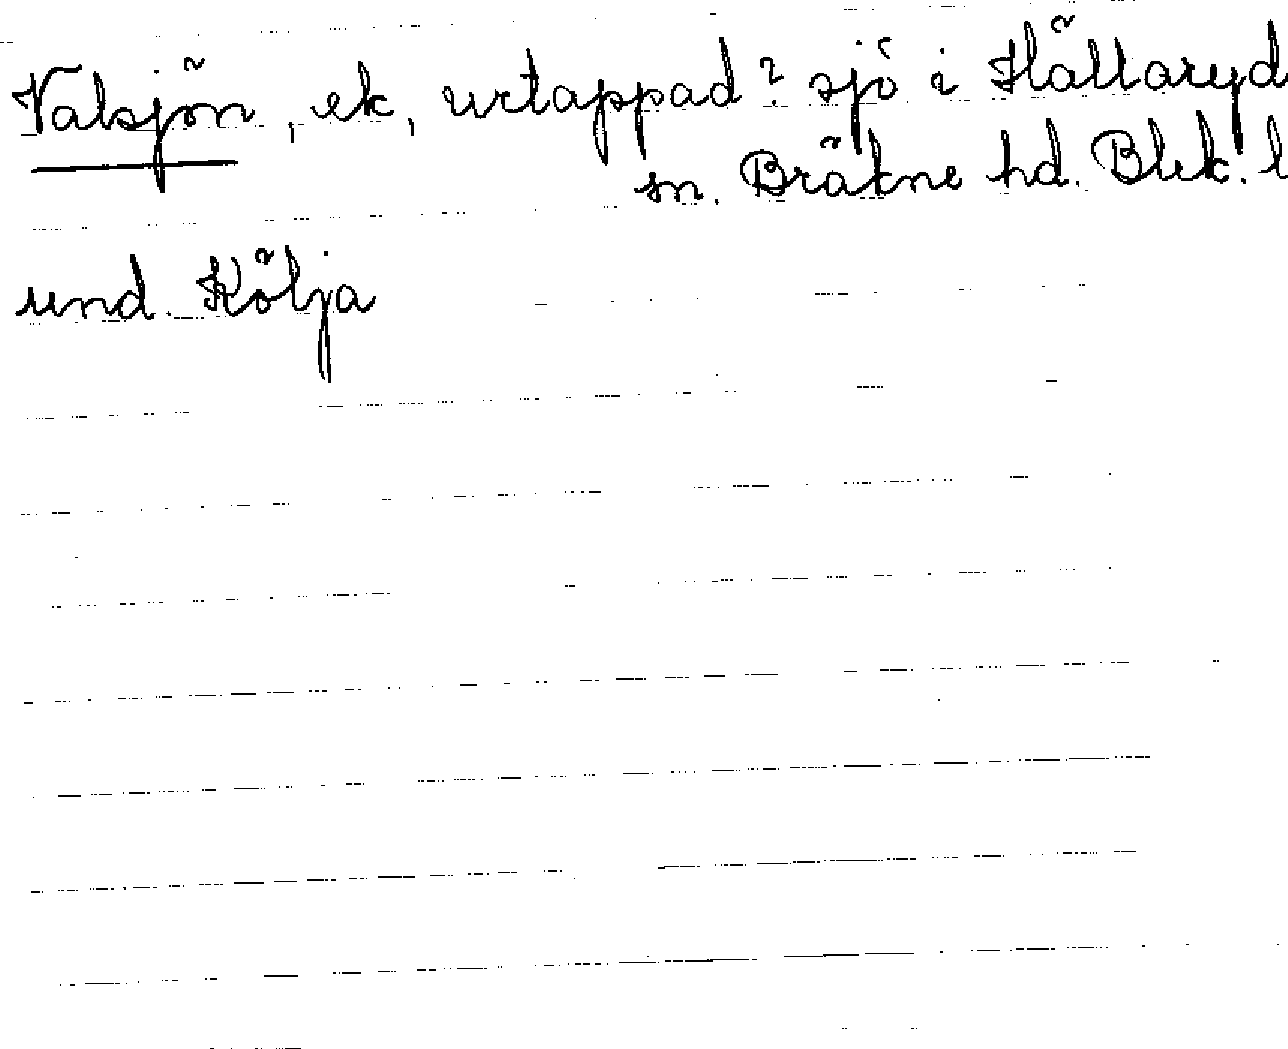 Valsjön, ek, urtappad? sjö i Hällaryd
sn. Bräkne hd. Blek. l
und. Kölja